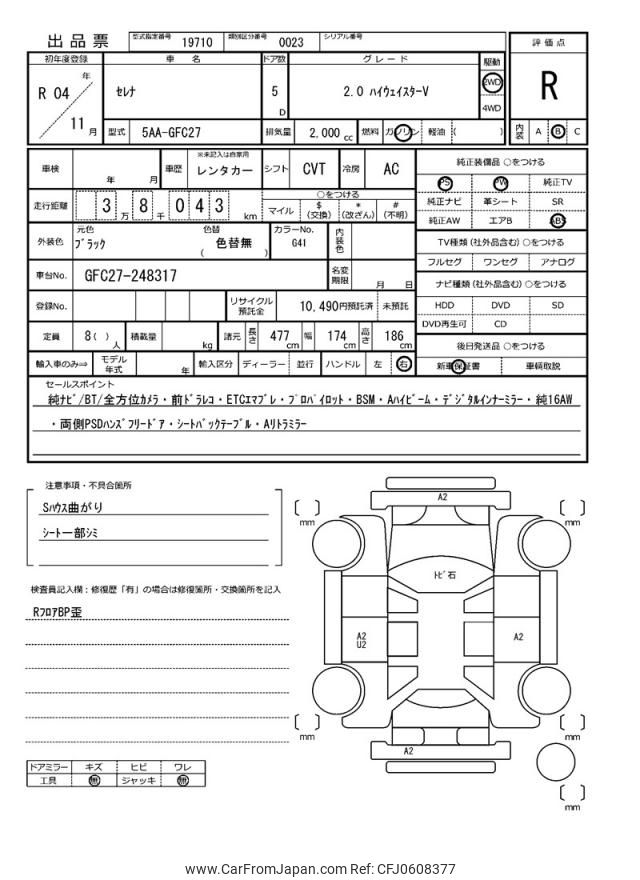 出品票 型式指定番号 19710 類別区分番号 0023 シリアル番号
評価点
R
初年度登録 車 名 ドア数 グレード 駆動
R 04 年 11 月
セレナ 5 D 2.0 ハイウェイスターV 2WD 4WD
型式 5AA-GFC27 排気量 2,000 cc 燃料 ガソリン 軽油 ( )
内装 A B C
車検 年 月 車歴 ※未記入は自家用 レンタカー シフト CVT 冷房 AC
走行距離 3 万 8 千 0 4 3 km
○をつける
マイル $ (交換) * (改ざん) # (不明)
外装色 元色 ブラック 色替 色替無 ( ) カラーNo. G41 内装色
車台No. GFC27-248317 名変期限 月 日
登録No. リサイクル預託金 10,490円預託済 未預託
定員 8( ) 人 積載量 kg 諸元 長さ 477 cm 幅 174 cm 高さ 186 cm
輸入車のみ⇒ モデル年式 年 輸入区分 ディーラー 並行 ハンドル 左 右
純正装備品 ○をつける
PS PW 純正TV
純正ナビ 革シート SR
純正AW エアB ABS
TV種類 (社外品含む) ○をつける
フルセグ ワンセグ アナログ
ナビ種類 (社外品含む) ○をつける
HDD DVD SD
DVD再生可 CD
後日発送品 ○をつける
新車保証書 車輌取説
セールスポイント
純ナビ/BT/全方位カメラ・前ドラレコ・ETCエマブレ・プロパイロット・BSM・Aハイビーム・デジタルインナーミラー・純16AW
・両側PSDハンズフリードア・シートバックテーブル・Aリトラミラー
注意事項・不具合箇所
Sハウス曲がり
シート一部シミ
検査員記入欄：修復歴「有」の場合は修復箇所・交換箇所を記入
RフロアBP歪
ドアミラー キズ ヒビ ワレ
工具 無 ジャッキ 無
A2
mm
mm
トビ石
A2
U2
A2
mm
mm
A2
mm
www.CarFromJapan.com Ref: CFJ0608377